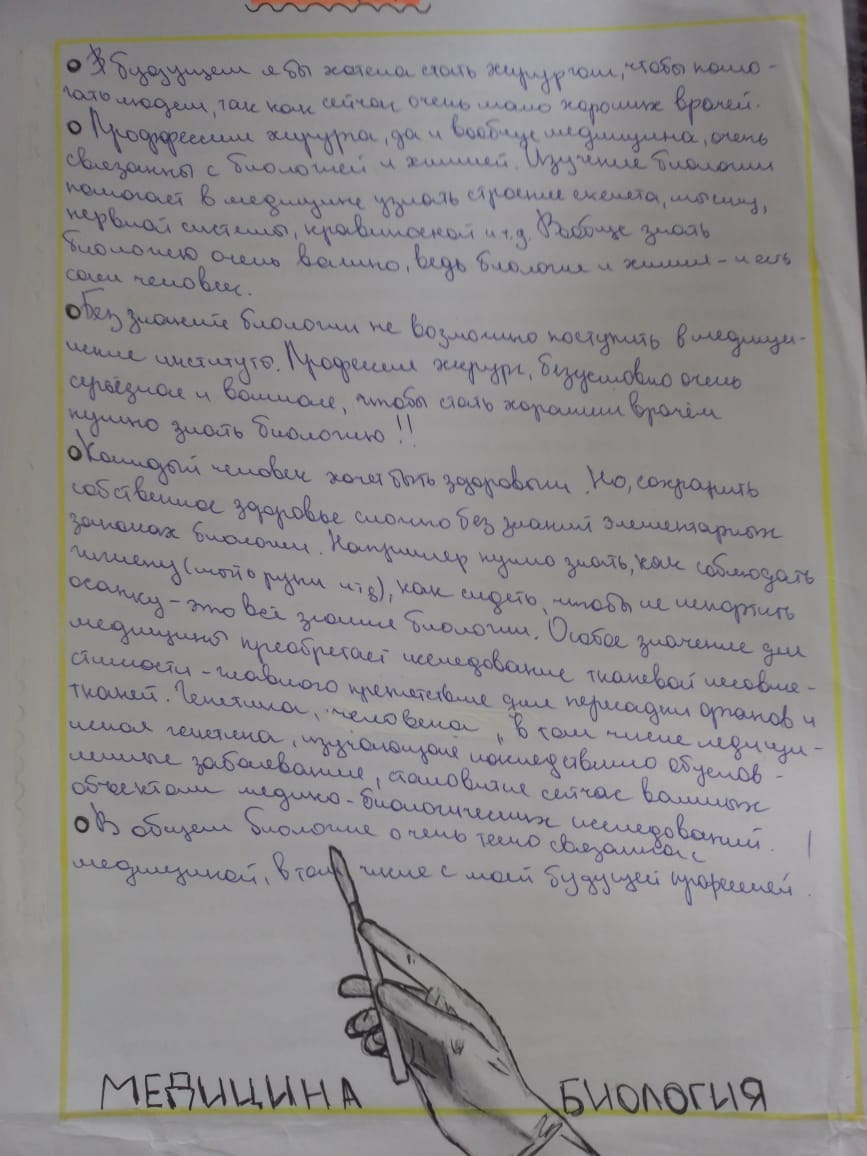 В будущем я бы хотела стать хирургом, чтобы помо-
гать людям, так как сейчас очень мало хороших врачей.
Проффессии хирурга, да и вообще медицина, очень
связанны с биологией и химией. Изучение биологии
помогает в медицине узнать строение скелета, мышц,
нервной системы, кравиносной и т.д. Вобще знать
биологию очень важно, ведь биология и химия - и есть
сам человек.
Без знаний биологии не возможно поступить в медици-
нские институты. Профессия хирург, безусловно очень
серьёзная и важная, чтобы стать хорошим врачём
нужно знать биологию!!
Каждый человек хочет быть здоровым. Но, сохранить
собственное здоровье сложно без знаний элементарных
законах биологии. Например нужно знать, как соблюдать
гигиену (мыть руки итд), как сидеть, чтобы не испортить
осанку - это всё знания биологии. Особое значение для
медицины преобретает исследование тканевой несовме-
стимости - главного препятствие для пересадки органов и
тканей. Генетика, человека, в том числе медици-
нская генетика, изучающая наследственно обуслов-
ленные заболевание, становится сейчас важных
объектом медико-биологических исследований.
В общем биология очень тесно связанна с
медициной, в том числе с моей будущей профессией.
МЕДИЦИНА БИОЛОГИЯ